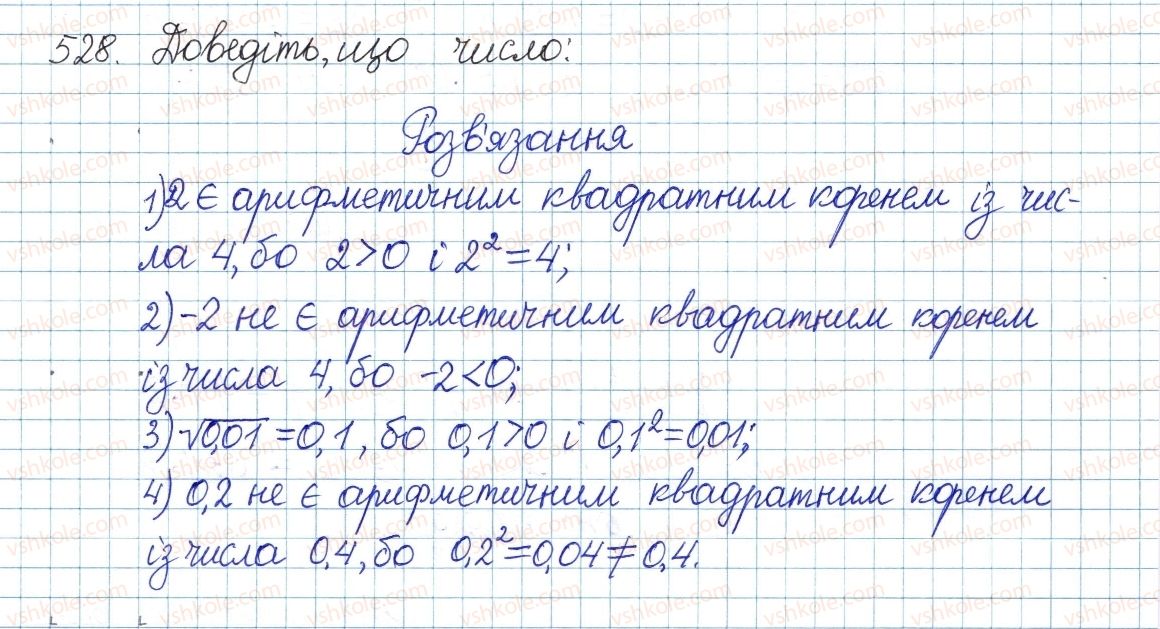 528. Доведіть, що число:
Розв'язання
1) 2 є арифметичним квадратним коренем із чис-
ла 4, бо 2>0 і 2²=4;
2) -2 не є арифметичним квадратним коренем
із числа 4, бо -2<0;
3) √0,01 =0,1, бо 0,1>0 і 0,1²=0,01;
4) 0,2 не є арифметичним квадратним коренем
із числа 0,4, бо 0,2²=0,04≠0,4.
vshkole.com